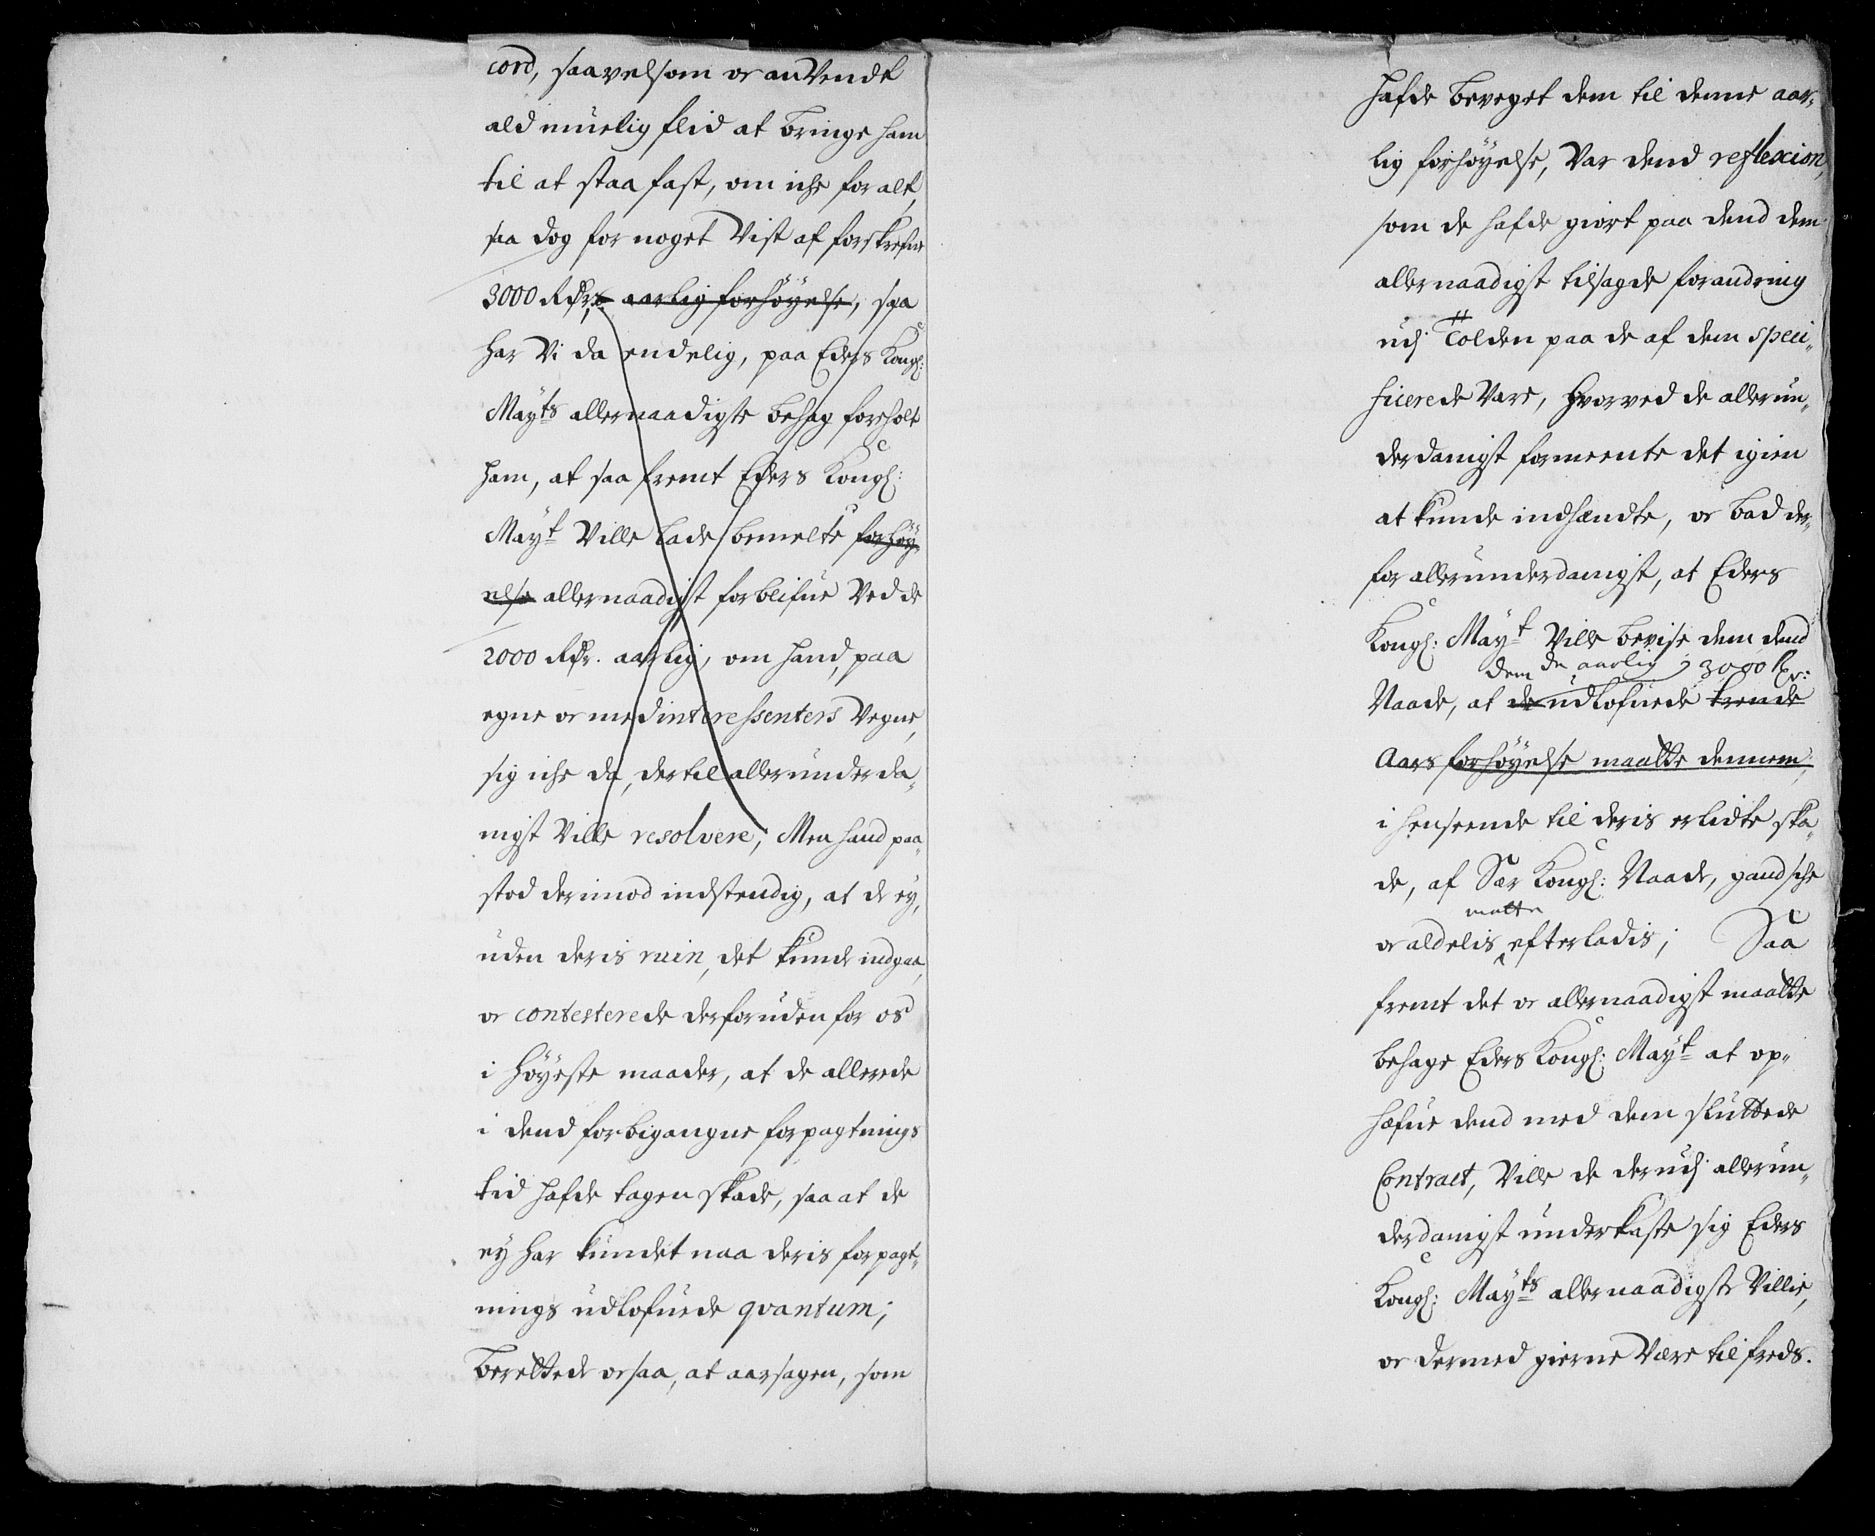 cord, saavelsom or anVendt
ald muelig flid at bringe ham
til at staa fast, om iche for alt,
saa dog for noget Vist af forskrefne
3000 Rdr. aarlig forhøyelse, saa
har Vi da endelig, paa Eders Kongl:
Mayts allernaadigste behag foreholt
ham, at saa fremt Eders Kongl:
Mayt Ville lade bemelte forhøy-
else allernaadigst forblifue Ved de
2000 Rdr. aarlig, om hand, paa
egne or medinteressenters Vegne,
sig iche da, dertil allerunderda-
nigst Ville resolvere; Men hand paa-
stod derimod indstendig, at de ey,
uden deris ruin, det kunde indgaa,
or contesterede derforuden for os
i høyeste maader, at de allerede
i dend forbigangne forpagtnings
tid hafde tagen skade, saa at de
ey har kundet naa deris forpagt-
nings udlofuede qvantum;
Berettede orsaa, at aarsagen, som
hafde beveget dem til denne aar-
lig forhøyelse, Var dend reflexion,
som de hafde giort paa dend dem
allernaadigst tilsagde forandring
udj Tolden paa de af dem speci-
ficerede Vare, hvorved de allerun-
derdanigst formeente det igien
at kunde indhændte, or bad der-
for allerunderdanigst, at Eders
Kongl: Mayt Ville bevise dem dend
dem de aarlig 3000 Rr:
Naade, at de udlofuede trende
Aars forhøyelse maatte dennem,
i henseende til deris erlidte ska-
de, af Sær Kongl: Naade, gandsche
matte
or aldelis efterladis; Saa
fremt det or allernaadigst maatte
behage Eders Kongl: Mayt at op-
hæfue dend med dem sluttede
Contract, Ville de derudj allerun-
derdanigst underkaste sig Eders
Kongl: Mayts allernaadigste Villie,
or dermed gierne Være tilfreds.